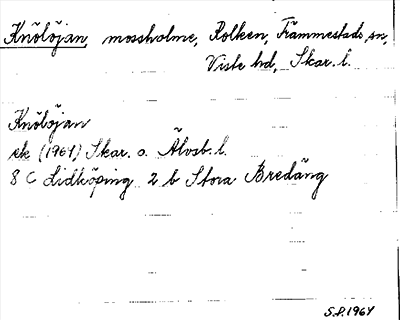 Knölöjan, mossholme, Rolken, Främmestads sn,
Viste hd, Skar. l.
Knölöjan
ek (1964) Skar. o. Älvsb. l.
8 C Lidköping 2 b Stora Bredäng
S.P. 1964